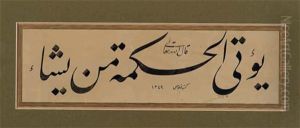 قال الله تعالى
يؤتى الحكمة من يشاء